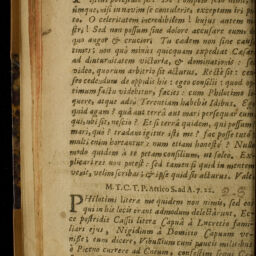 sumque, nisi nummum se consideris, exceptum iri
to. O celeritatem incredibilem! hujus autem n
stri! Sed non possum sine dolore accusare eum, de
quo angor & crucior: Tu cædem non sine cau
times: non quò minùs quicquam expediat Cæsar
ad diuturnitatem victoriæ, & dominationis:
video, quorum arbitrio sit acturus. Rectè sit: cen
seo cedendum de oppidis his: egeo consilii: quod op
timum factu videbitur, facies: cum Philotimo
quere, atque adeò Terentiam habebis Idibus. Eg
quid agam? quâ aut terrâ aut mari persequar eum
qui, ubi sit, nescio? Et si terrâ quidem, quî possum
mari, quò? tradam igitur isti me? fac posse tutò
multi enim hortantur: num etiam honestè? Nullo
modo quidem à te petam consilium, ut soleo. Ex
plicari res non potest: sed tamen si quid in mentem
venit, velim scribas: & ipse quid sis acturus. Vale
M. T. C. T. P. Attico S. ad A. 7. 22.
PHilotimi litteræ me quidem non nimis, sed eos
qui in his locis erant admodum delectârunt. Ec
ce postridie Cassii litteræ Capuâ à Lucretio fami
liari ejus, Nigidium à Domitio Capuam ve
nisse: eum dicere, Vibullium cum paucis militibus
è Piceno currere ad Cnæum, confestim sequi Cæ